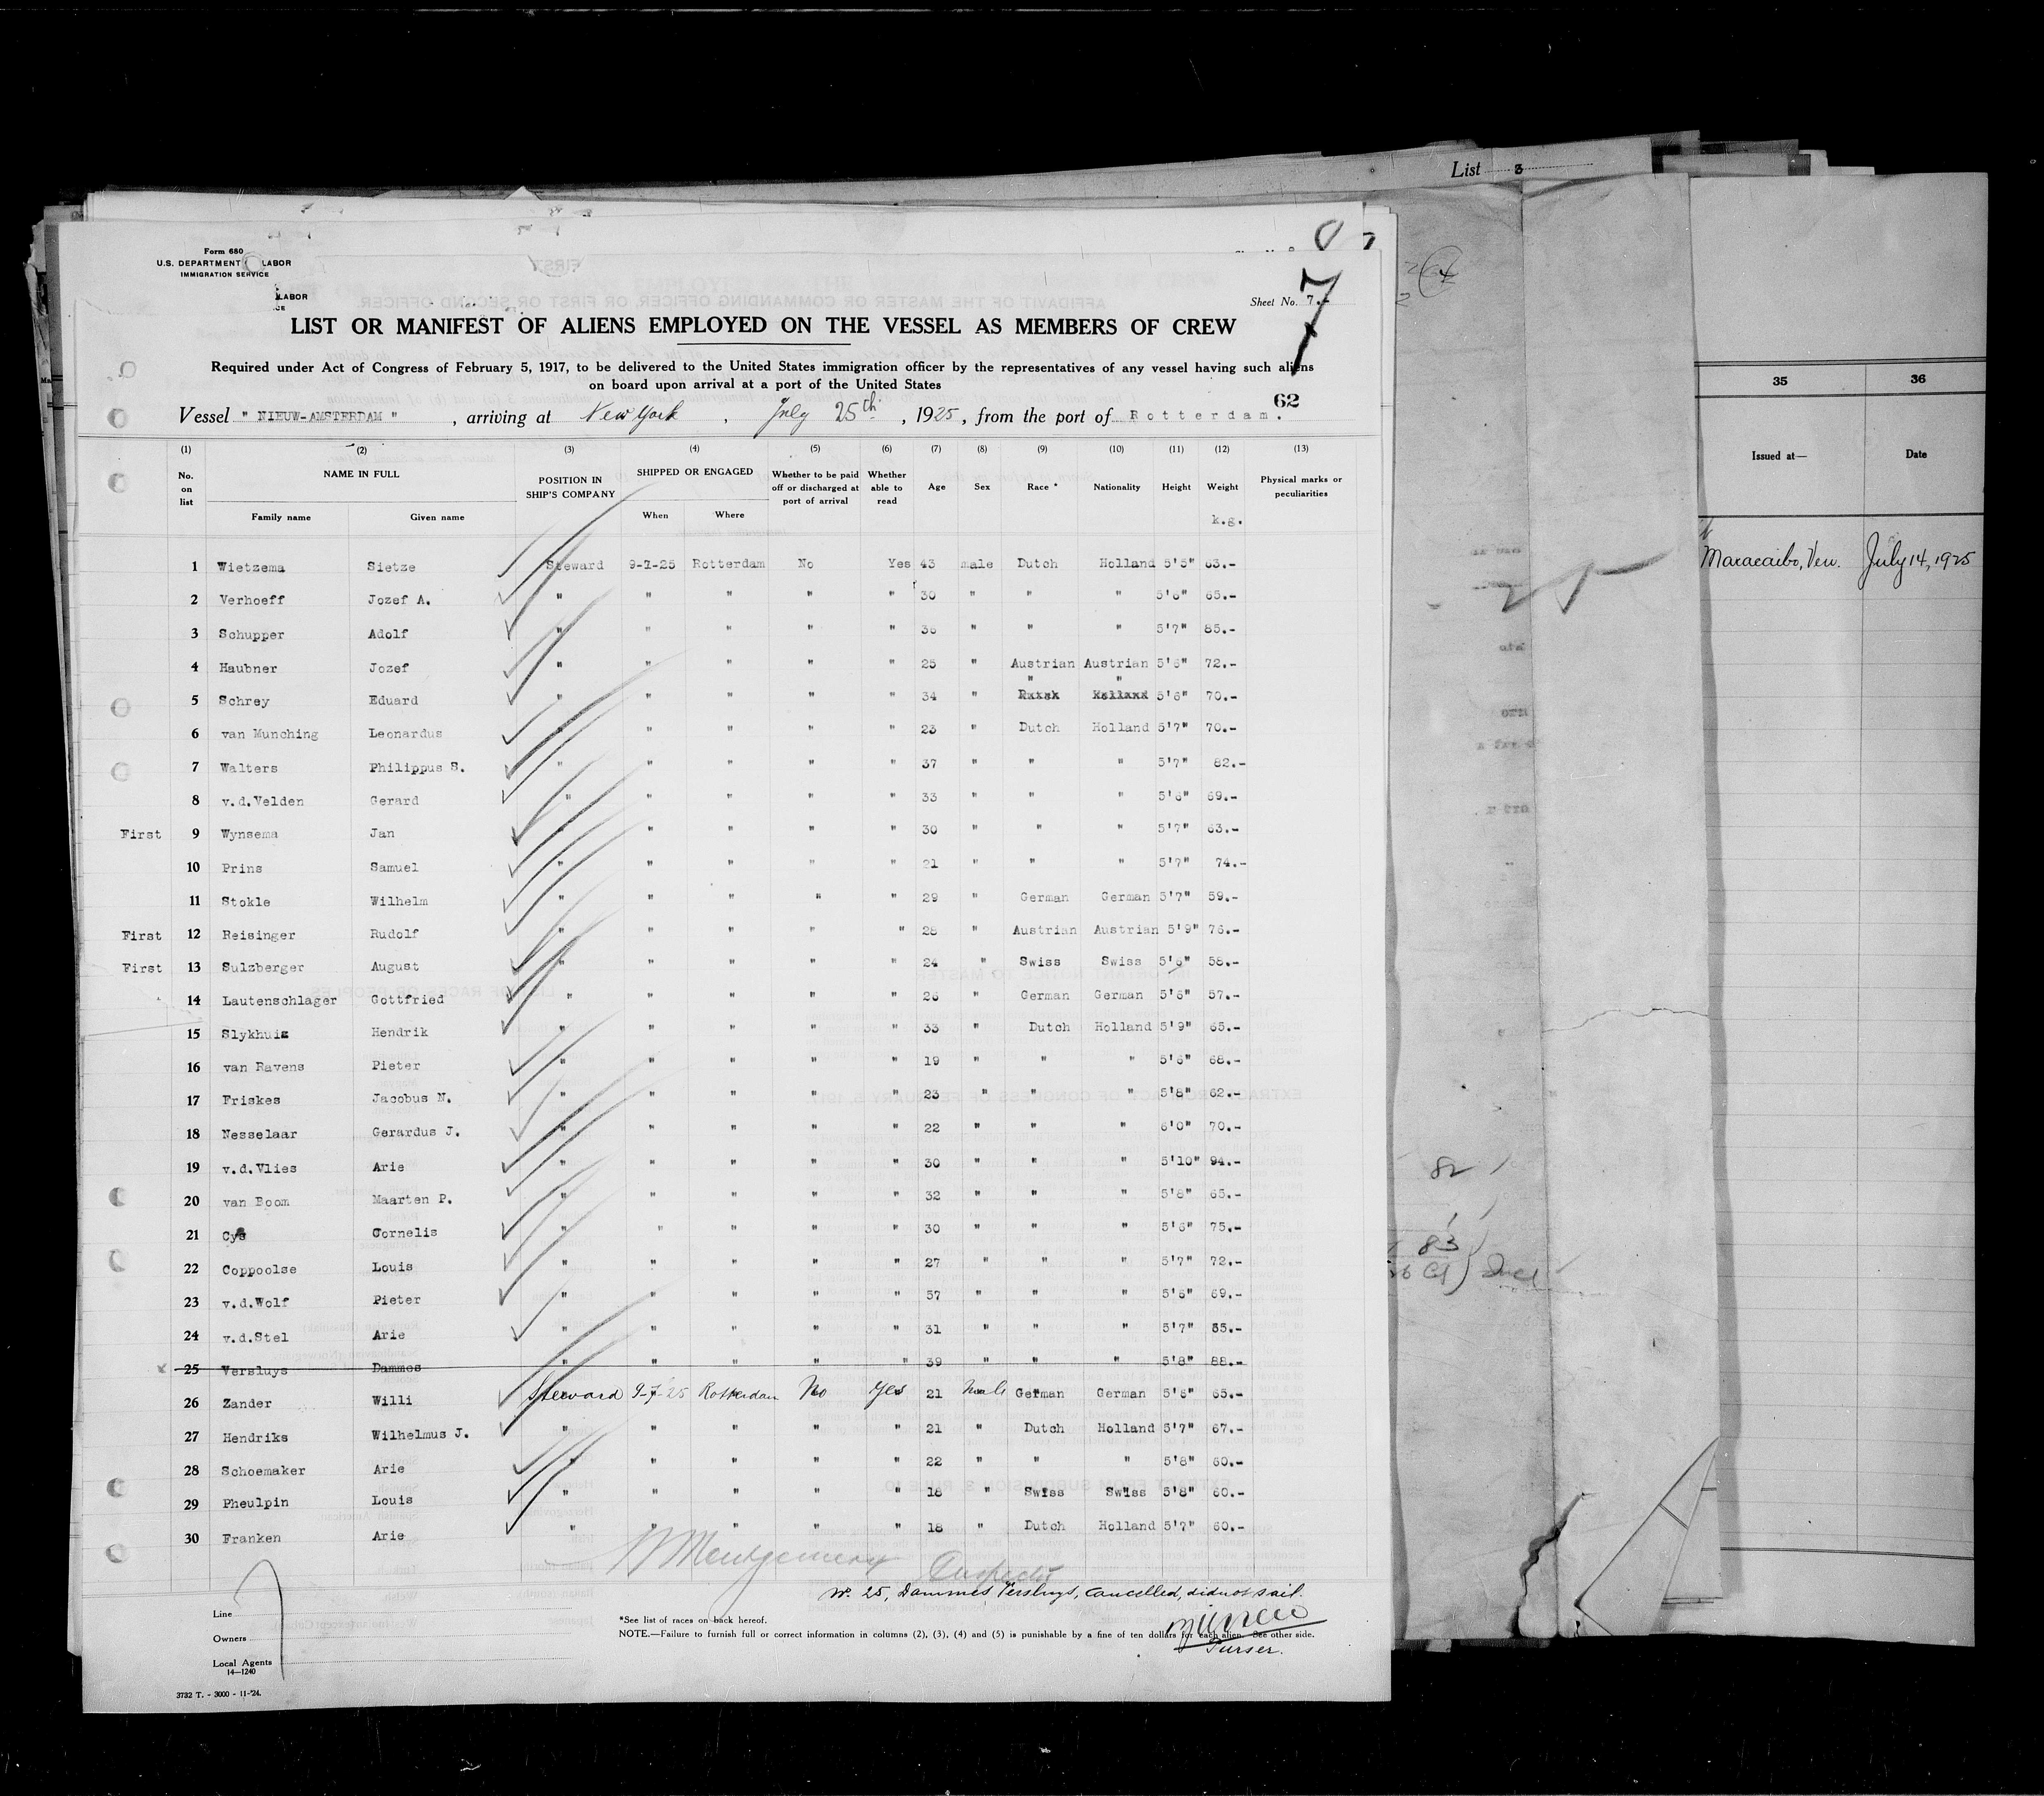 List 3
Form 680
U.S. DEPARTMENT LABOR
IMMIGRATION SERVICE
LABOR
CE
7
Sheet No. 7.-
LIST OR MANIFEST OF ALIENS EMPLOYED ON THE VESSEL AS MEMBERS OF CREW
Required under Act of Congress of February 5, 1917, to be delivered to the United States immigration officer by the representatives of any vessel having such aliens
on board upon arrival at a port of the United States
62
Vessel " NIEUW-AMSTERDAM " , arriving at New York , July 25th , 1925, from the port of Rotterdam.
(1) (2) (3) (4) (5) (6) (7) (8) (9) (10) (11) (12) (13)
No. on list NAME IN FULL Family name Given name POSITION IN SHIP'S COMPANY SHIPPED OR ENGAGED When Where Whether to be paid off or discharged at port of arrival Whether able to read Age Sex Race * Nationality Height Weight k.g. Physical marks or peculiarities
1 Wietzema Sietze Steward 9-7-25 Rotterdam No Yes 43 male Dutch Holland 5'5" 63.-
2 Verhoeff Jozef A. " " " " " 30 " " " 5'6" 65.-
3 Schupper Adolf " " " " " 36 " " " 5'7" 85.-
4 Haubner Jozef " " " " " 25 " Austrian Austrian 5'6" 72.-
5 Schrey Eduard " " " " " 34 " " " 5'6" 70.-
6 van Munching Leonardus " " " " " 23 " Dutch Holland 5'7" 70.-
7 Walters Philippus S. " " " " " 37 " " " 5'7" 82.-
8 v.d.Velden Gerard " " " " " 33 " " " 5'6" 69.-
First 9 Wynsema Jan " " " " " 30 " " " 5'7" 63.-
10 Prins Samuel " " " " " 21 " " " 5'7" 74.-
11 Stokle Wilhelm " " " " " 29 " German German 5'7" 59.-
First 12 Reisinger Rudolf " " " " " 28 " Austrian Austrian 5'9" 76.-
First 13 Sulzberger August " " " " " 24 " Swiss Swiss 5'6" 58.-
14 Lautenschlager Gottfried " " " " " 26 " German German 5'6" 57.-
15 Slykhuis Hendrik " " " " " 33 " Dutch Holland 5'9" 65.-
16 van Ravens Pieter " " " " " 19 " " " 5'6" 68.-
17 Friskes Jacobus N. " " " " " 23 " " " 5'8" 62.-
18 Nesselaar Gerardus J. " " " " " 22 " " " 6'0" 70.-
19 v.d.Vlies Arie " " " " " 30 " " " 5'10" 94.-
20 van Boom Maarten P. " " " " " 32 " " " 5'8" 65.-
21 Cys Cornelis " " " " " 30 " " " 5'6" 75.-
22 Coppoolse Louis " " " " " 27 " " " 5'7" 72.-
23 v.d.Wolf Pieter " " " " " 57 " " " 5'6" 69.-
24 v.d.Stel Arie " " " " " 31 " " " 5'7" 55.-
x 25 Versluys Dammes " " " " " 39 " " " 5'8" 88.-
26 Zander Willi Steward 9-7-25 Rotterdam No Yes 21 Male German German 5'6" 65.-
27 Hendriks Wilhelmus J. " " " " " 21 " Dutch Holland 5'7" 67.-
28 Schoemaker Arie " " " " " 22 " " " 5'8" 60.-
29 Pheulpin Louis " " " " " 18 " Swiss Swiss 5'8" 60.-
30 Franken Arie " " " " " 18 " Dutch Holland 5'7" 60.-
Montgomery Inspector
No. 25, Dammes Versluys, cancelled, did not sail.
Purser.
Line
Owners
Local Agents
14—1240
*See list of races on back hereof.
NOTE.—Failure to furnish full or correct information in columns (2), (3), (4) and (5) is punishable by a fine of ten dollars for each alien. See other side.
3732 T. - 3000 - 11-'24.
35 36
Issued at— Date
Maracaibo, Ven. July 14, 1925
82
83